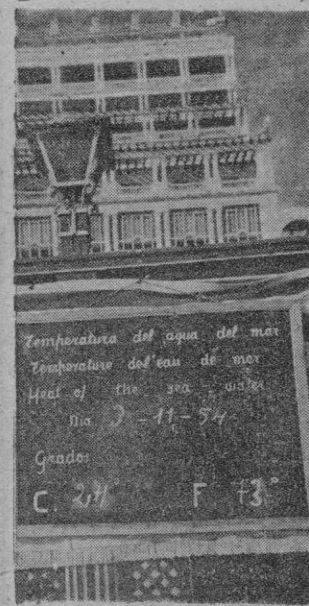 Temperatura del agua del mar
Temperature del'eau de mer
Heat of the sea water
Dia 3-11-54
Grados
C. F 73°